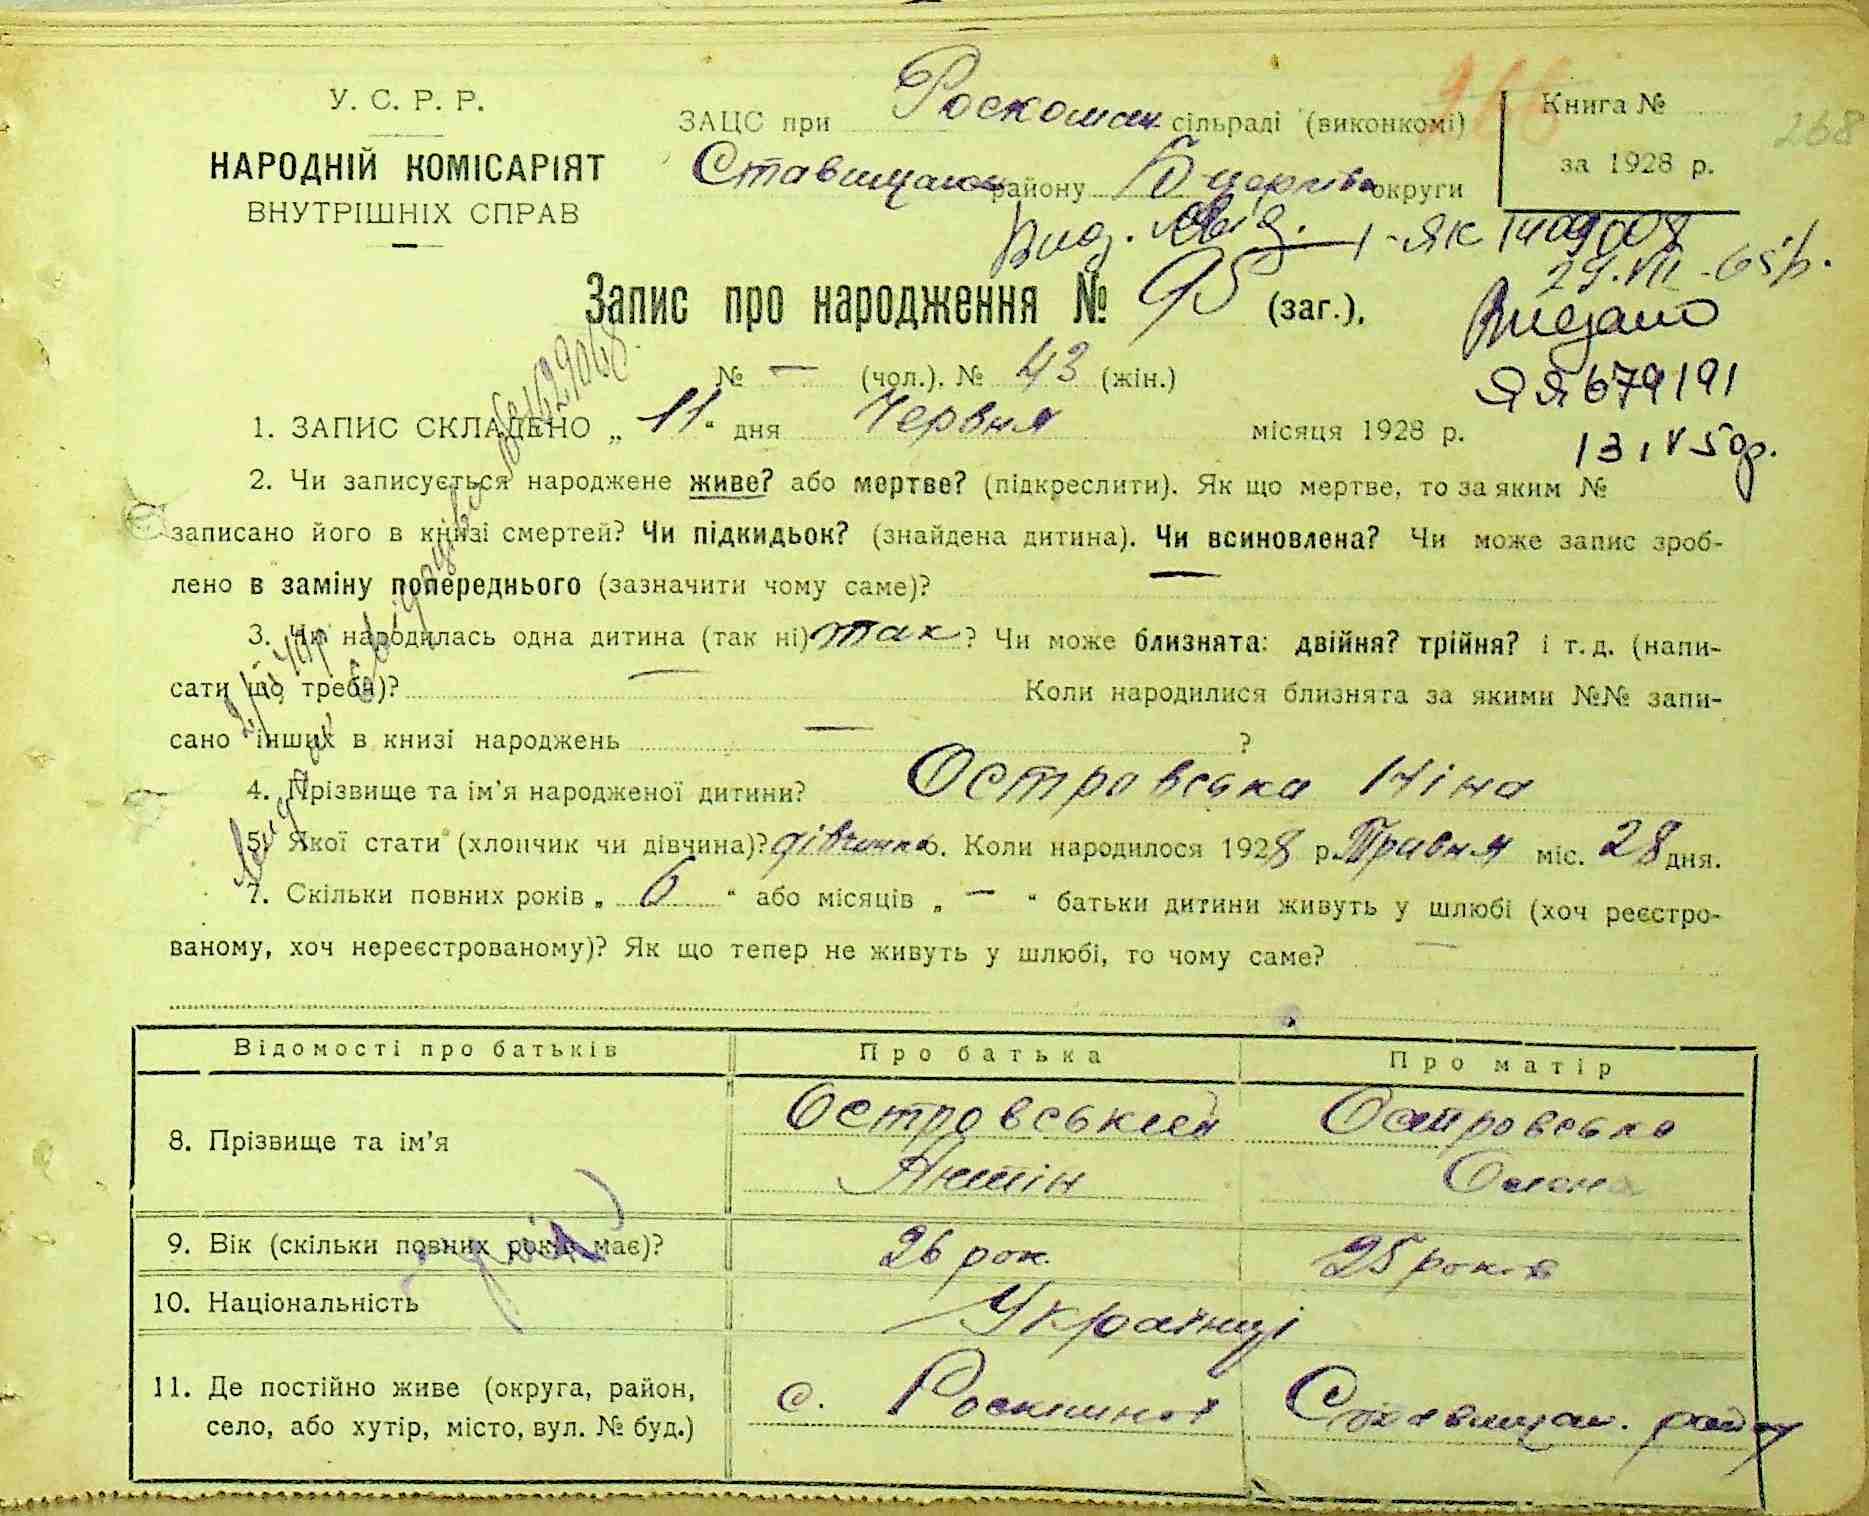 У. С. Р. Р.
НАРОДНІЙ КОМІСАРІЯТ
ВНУТРІШНІХ СПРАВ
ЗАЦС при Роскошн сільраді (виконкомі)
району Б церків округи
Книга №
за 1928 р.
268
Запис про народження № 95 (заг.),
29. VII - 65 р.
Видано
ЯЯ 679191
13 IV 50р.
№ — (чол.). № 43 (жін.)
1. ЗАПИС СКЛАДЕНО „ 11 “ дня Червня місяця 1928 р.
2. Чи записується народжене живе? або мертве? (підкреслити). Як що мертве, то за яким №
записано його в книзі смертей? Чи підкидьок? (знайдена дитина). Чи всиновлена? Чи може запис зроб-
лено в заміну попереднього (зазначити чому саме)? —
3. Чи народилась одна дитина (так ні) так ? Чи може близнята: двійня? трійня? і т. д. (напи-
сати що треба)? — Коли народилися близнята за якими №№ запи-
сано інших в книзі народжень — ?
4. Прізвище та ім’я народженої дитини? Островська Ніна
5. Якої стати (хлопчик чи дівчина)? дівчинка 6. Коли народилося 1928 р. Травня міс. 28 дня.
7. Скільки повних років „ 6 “ або місяців „ — “ батьки дитини живуть у шлюбі (хоч реєстро-
ваному, хоч нереєстрованому)? Як що тепер не живуть у шлюбі, то чому саме? —
Відомості про батьків Про батька Про матір
8. Прізвище та ім’я Островський Островська
Антін Олена
9. Вік (скільки повних років має)? 26 рок. 25 років
10. Національність Українці
11. Де постійно живе (округа, район,
село, або хутір, місто, вул. № буд.)
с. Роскошної Ставищан. району